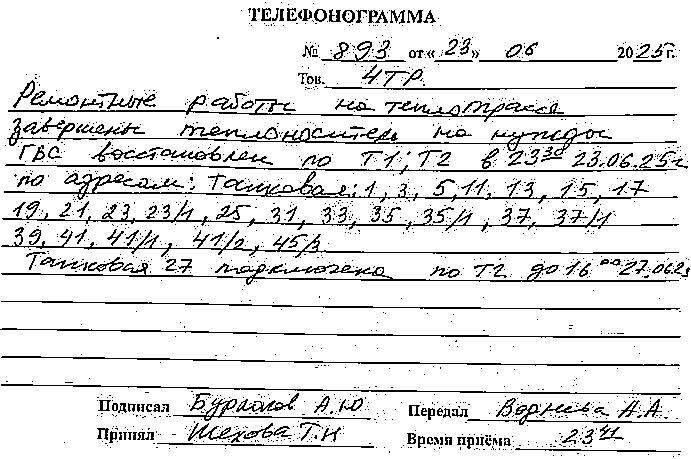 ТЕЛЕФОНОГРАММА
№ 893 от «23» 06 2025 г.
Тов. 4ТР.
Ремонтные работы на теплотрассе
завершены теплоноситель на нужды
ГВС восстановлен по Т1; Т2 в 23³⁰ 23.06.25г
по адресам: Танковая: 1, 3, 5, 11, 13, 15, 17
19, 21, 23, 23/1, 25, 31, 33, 35, 35/1, 37, 37/1
39, 41, 41/1, 41/2, 45/3
Танковая 27 подключена по Т2 до 16⁰⁰ 27.06.25
Подписал А.Ю. Передал А.А.
Принял Шехова Т.Н Время приёма 23⁴¹